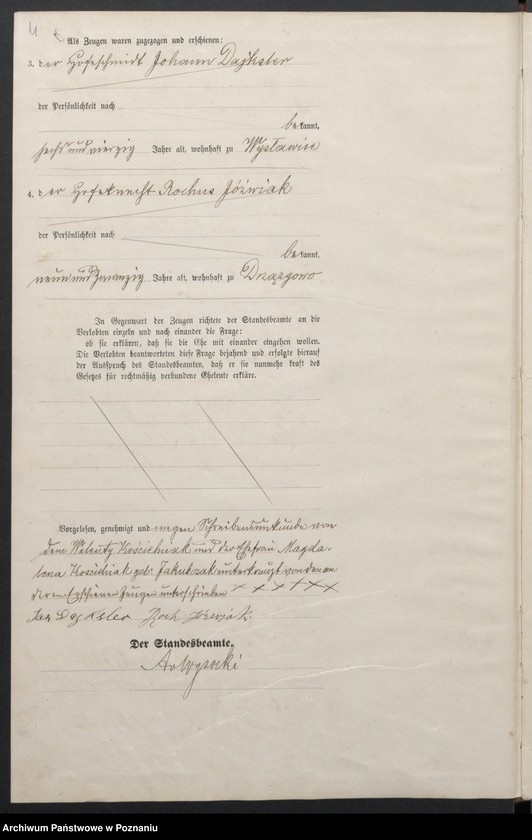 4
Als Zeugen waren zugezogen und erschienen:
3. der Hofeschmidt Johann Dajkster
der Persönlichkeit nach
bekannt,
sechs und vierzig Jahre alt, wohnhaft zu Wysławice
4. der Hofeknecht Rochus Jóźwiak
der Persönlichkeit nach
bekannt,
neun und zwanzig Jahre alt, wohnhaft zu Drzązgowo
In Gegenwart der Zeugen richtete der Standesbeamte an die
Verlobten einzeln und nach einander die Frage:
ob sie erklären, daß sie die Ehe mit einander eingehen wollen.
Die Verlobten beantworteten diese Frage bejahend und erfolgte hierauf
der Ausspruch des Standesbeamten, daß er sie nunmehr kraft des
Gesetzes für rechtmäßig verbundene Eheleute erkläre.
Vorgelesen, genehmigt und wegen Schreibensunkunde von
dem Walenty Kościelniak und der Ehefrau Magda-
lena Kościelniak geb. Jakubczak unterkreuzt von den an
deren Erschienenen unterschrieben × × × + × ×
Jan Dajksler Roch
Der Standesbeamte.
A v Wysocki
Archiwum Państwowe w Poznaniu